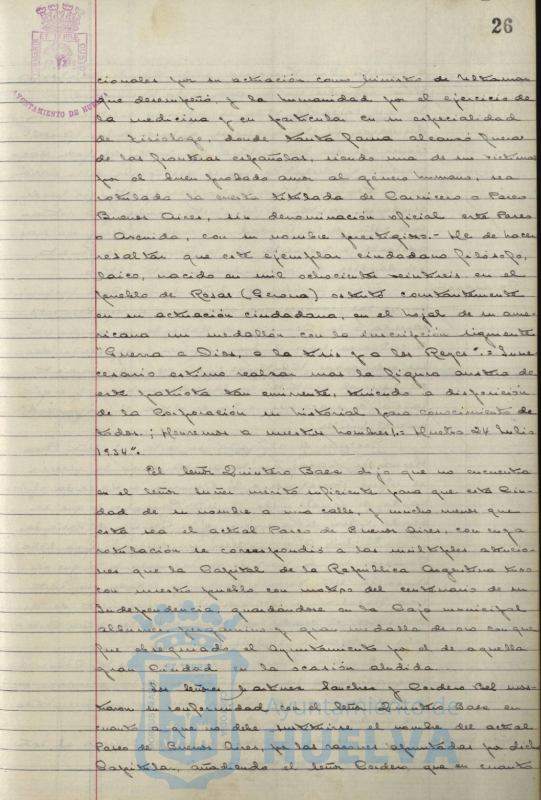 26
AYUNTAMIENTO DE HUELVA
cionales por su actuación como Ministro de Ultramar
que desempeñó, y la humanidad por el ejercicio de
la medicina y en particular en su especialidad
de tisiólogo, donde tanta fama alcanzó fuera
de las fronteras españolas, siendo una de sus víctimas
por el bien probado amor al género humano, sea
rotulada la cuesta titulada de Carnicero o Paseo
Buenos Aires, sin denominación oficial este Paseo
o Avenida, con su nombre prestigioso.- He de hacer
resaltar que este ejemplar ciudadano filósofo,
laico, nacido en mil ochocientos veintiseis en el
pueblo de Rosas (Gerona) ostentó constantemente
en su actuación ciudadana, en el hojal de su ame-
ricana un medallón con la inscripción siguiente
"Guerra a Dios, a la tisis y a los Reyes".= Inne-
cesario estimo realzar mas la figura austera de
este patriota tan eminente, teniendo a disposición
de la Corporación su historial para conocimiento de
todos. ¡Honremos a nuestros hombres!.= Huelva 24 Julio
1934".
El señor Quintero Baez dijo que no encuentra
en el señor Suñer mérito suficiente para que esta Ciu-
dad de su nombre a una calle, y mucho menos que
esta sea el actual Paseo de Buenos Aires, con cuya
rotulación se correspondió a las múltiples atencio-
nes que la Capital de la República Argentina tuvo
con nuestro pueblo con motivo del centenario de su
Independencia guardándose en la Caja municipal
álbumes y gran medalla de oro con que
fue obsequiado el Ayuntamiento por el de aquella
gran Ciudad en la ocasión aludida.
Los señores Martinez Sanchez y Cordero Bel mos-
traron su conformidad con el señor Quintero Baez en
cuanto a que no debe sustituirse el nombre del actual
Paseo de Buenos Aires, por las razones apuntadas por dicho
Capitular, añadiendo el señor Cordero que en cuanto
Ayuntamiento de
HUELVA